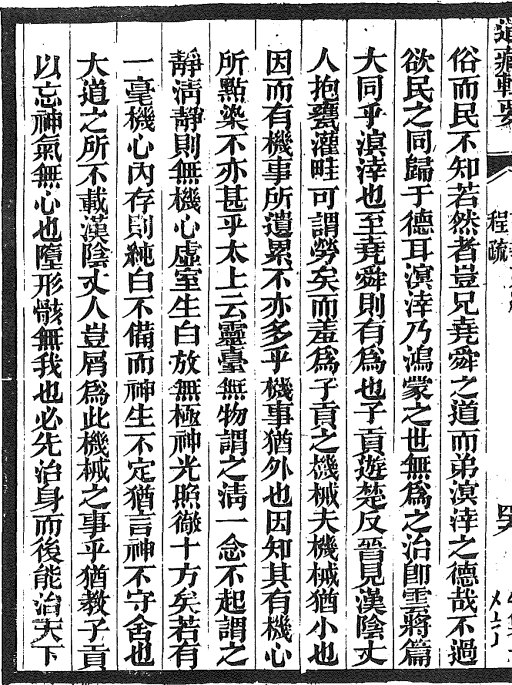 道藏輯要
程疏
俗而民不知若然者豈兄堯舜之道而弟溟涬之德哉不過
欲民之同歸于德耳溟涬乃鴻蒙之世無為之治卽雲將篇
大同乎溟涬也至堯舜則有為也子貢遊楚反晉見漢陰丈
人抱甕灌畦可謂勞矣而羞為子貢之機械夫機械猶小也
因而有機事所遺累不亦多乎機事猶外也因知其有機心
所點染不亦甚乎太上云靈臺無物謂之淸一念不起謂之
靜淸靜則無機心虛室生白放無極神光照徹十方矣若有
一毫機心內存則純白不備而神生不定猶言神不守舍也
大道之所不載漢陰丈人豈屑為此機械之事乎猶教子貢
以忘神氣無心也墮形骸無我也必先治身而後能治天下